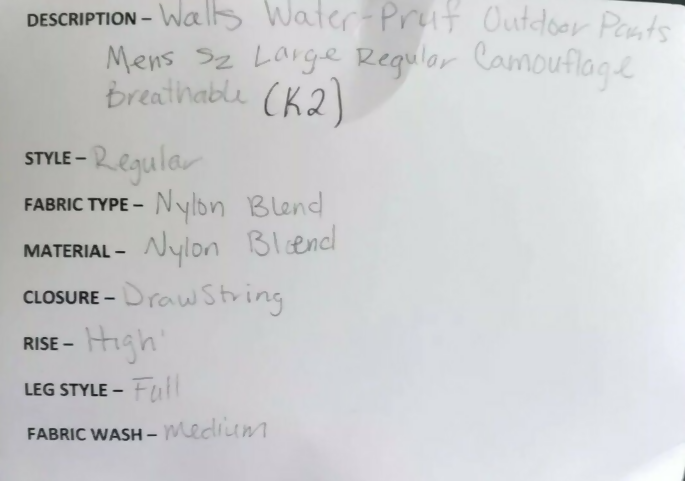 DESCRIPTION – Walls Water-Pruf Outdoor Pants
Mens Sz Large Regular Camouflage
Breathable (K2)
STYLE – Regular
FABRIC TYPE – Nylon Blend
MATERIAL – Nylon Blend
CLOSURE – DrawString
RISE – High
LEG STYLE – Full
FABRIC WASH – Medium